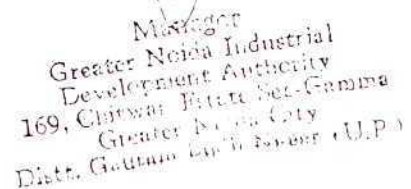 Manager
Greater Noida Industrial
Development Authority
169, Chitwan Estate Sec-Gamma
Greater Noida City
Distt. Gautam Budh Nagar (U.P.)